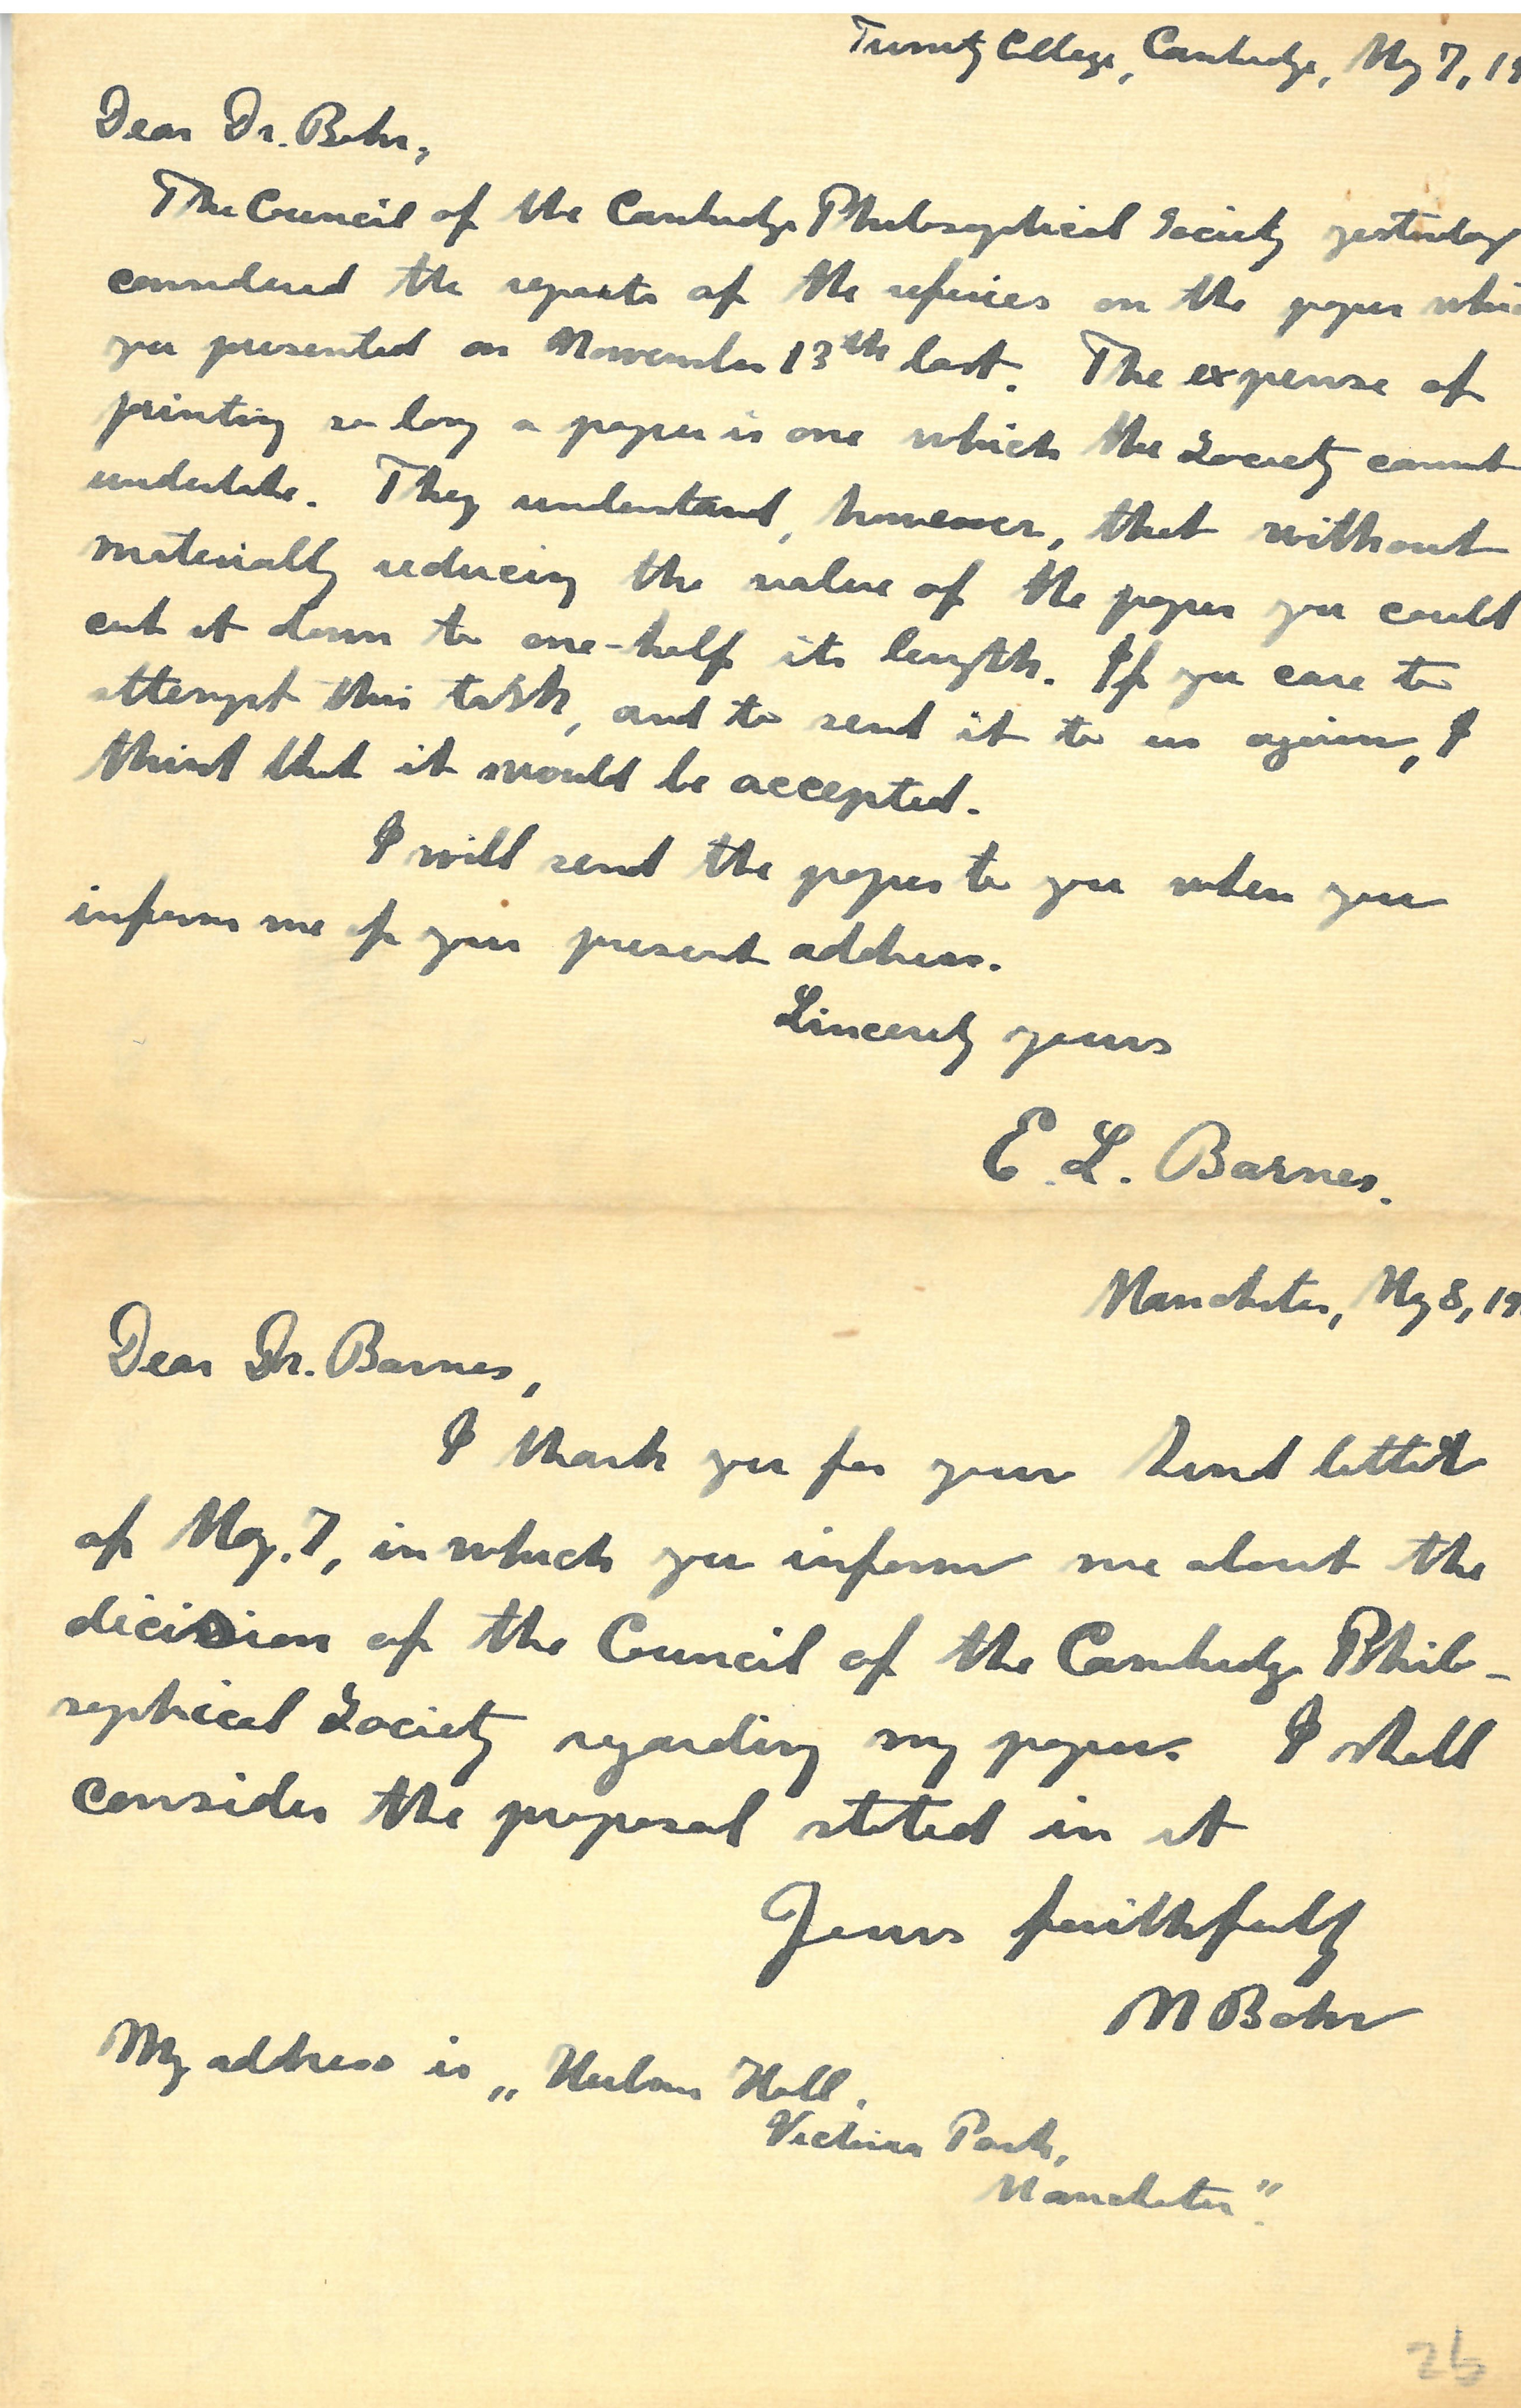 Trinity College, Cambridge, May 7, 19
Dear Dr. Bohr,
The Council of the Cambridge Philosophical Society yesterday
considered the reports of the referees on the paper whic
you presented on November 13th last. The expense of
printing so long a paper is one which the Society cannot
undertake. They understand, however, that without
materially reducing the value of the paper you could
cut it down to one-half its length. If you care to
attempt this task, and to send it to us again, I
think that it would be accepted.
I will send the paper to you when you
inform me of your present address.
Sincerely yours
E. L. Barnes.
Manchester, May 8, 19
Dear Dr. Barnes,
I thank you for your kind letter
of May. 7, in which you inform me about the
dicision of the Council of the Cambridge Philo-
sophical Society regarding my paper. I shall
consider the proposal stated in it
Yours faithfully
N Bohr
My address is „ Hulme Hall,
Victoria Park,
Manchester".
26